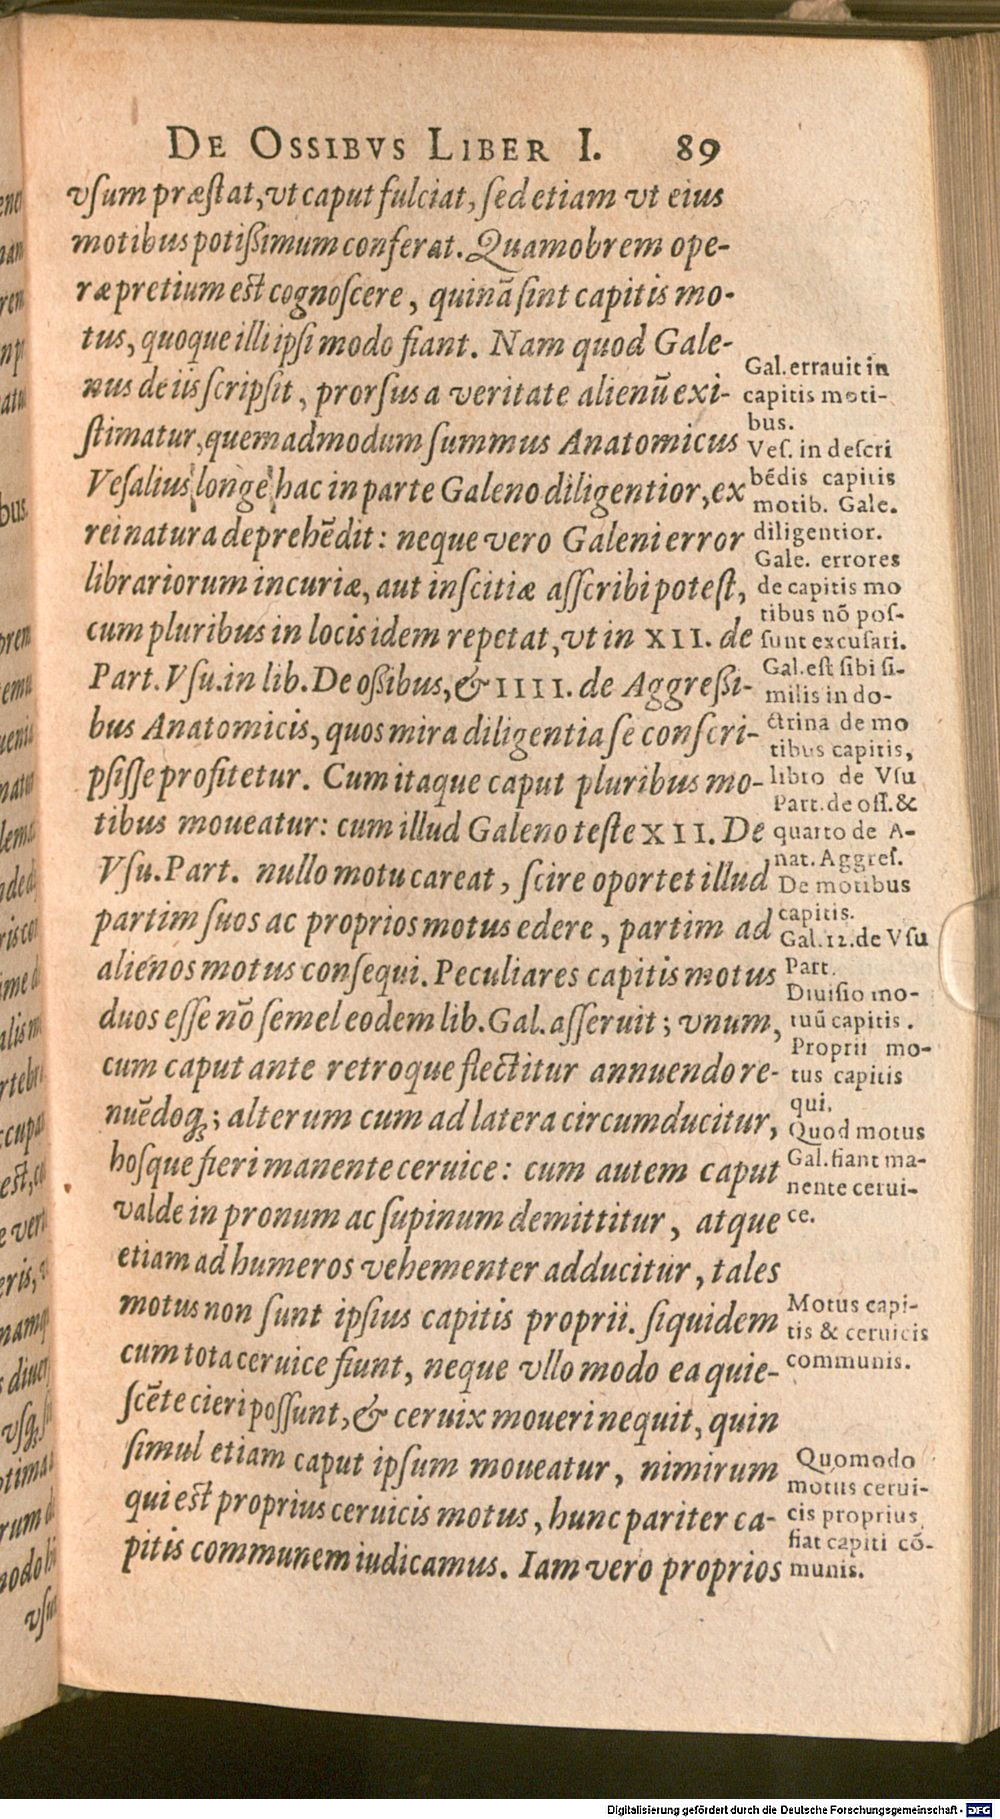 DE OSSIBVS LIBER I. 89
vſum præſtat, vt caput fulciat, ſed etiam vt eius
motibus potiſſimum conferat. Quamobrem ope-
ræpretium est cognoſcere, quinā ſint capitis mo-
tus, quoque illi ipſi modo fiant. Nam quod Gale-
nus de iis ſcripſit, prorſus a veritate alienū exi-
ſtimatur, quemadmodum ſummus Anatomicus
Veſalius longe hac in parte Galeno diligentior, ex
rei natura deprehēdit: neque vero Galeni error
librariorum incuriæ, aut inſcitiæ aſſcribi poteſt,
cum pluribus in locis idem repetat, vt in XII. de
Part. Vſu. in lib. De oßibus, & IIII. de Aggreßi-
bus Anatomicis, quos mira diligentia ſe conſcri-
pſiſſe profitetur. Cum itaque caput pluribus mo-
tibus moueatur: cum illud Galeno teſte XII. De
Vſu. Part. nullo motu careat, ſcire oportet illud
partim ſuos ac proprios motus edere, partim ad
alienos motus conſequi. Peculiares capitis motus
duos eſſe nō ſemel eodem lib. Gal. aſſeruit; vnum,
cum caput ante retroque flectitur annuendo re-
nuēdoq́ꝫ; alterum cum ad latera circumducitur,
hoſque fieri manente ceruice: cum autem caput
valde in pronum ac ſupinum demittitur, atque
etiam ad humeros vehementer adducitur, tales
motus non ſunt ipſius capitis proprii. ſiquidem
cum tota ceruice fiunt, neque vllo modo ea quie-
ſcēte cieri poſſunt, & ceruix moueri nequit, quin
ſimul etiam caput ipſum moueatur, nimirum
qui est proprius ceruicis motus, hunc pariter ca-
pitis communem iudicamus. Iam vero proprios
Gal. errauit in
capitis moti-
bus.
Veſ. in deſcri
bēdis capitis
motib. Gale.
diligentior.
Gale. errores
de capitis mo
tibus nō poſ-
ſunt excuſari.
Gal. eſt ſibi ſi-
milis in do-
ctrina de mo
tibus capitis,
libro de Vſu
Part. de oſſ. &
quarto de A-
nat. Aggreſ.
De motibus
capitis.
Gal. 12. de Vſu
Part.
Diuiſio mo-
tuū capitis.
Proprii mo-
tus capitis
qui.
Quod motus
Gal. fiant ma-
nente cerui-
ce.
Motus capi-
tis & ceruicis
communis.
Quomodo
motus cerui-
cis proprius,
fiat capiti cō-
munis.
Digitalisierung gefördert durch die Deutsche Forschungsgemeinschaft - DFG